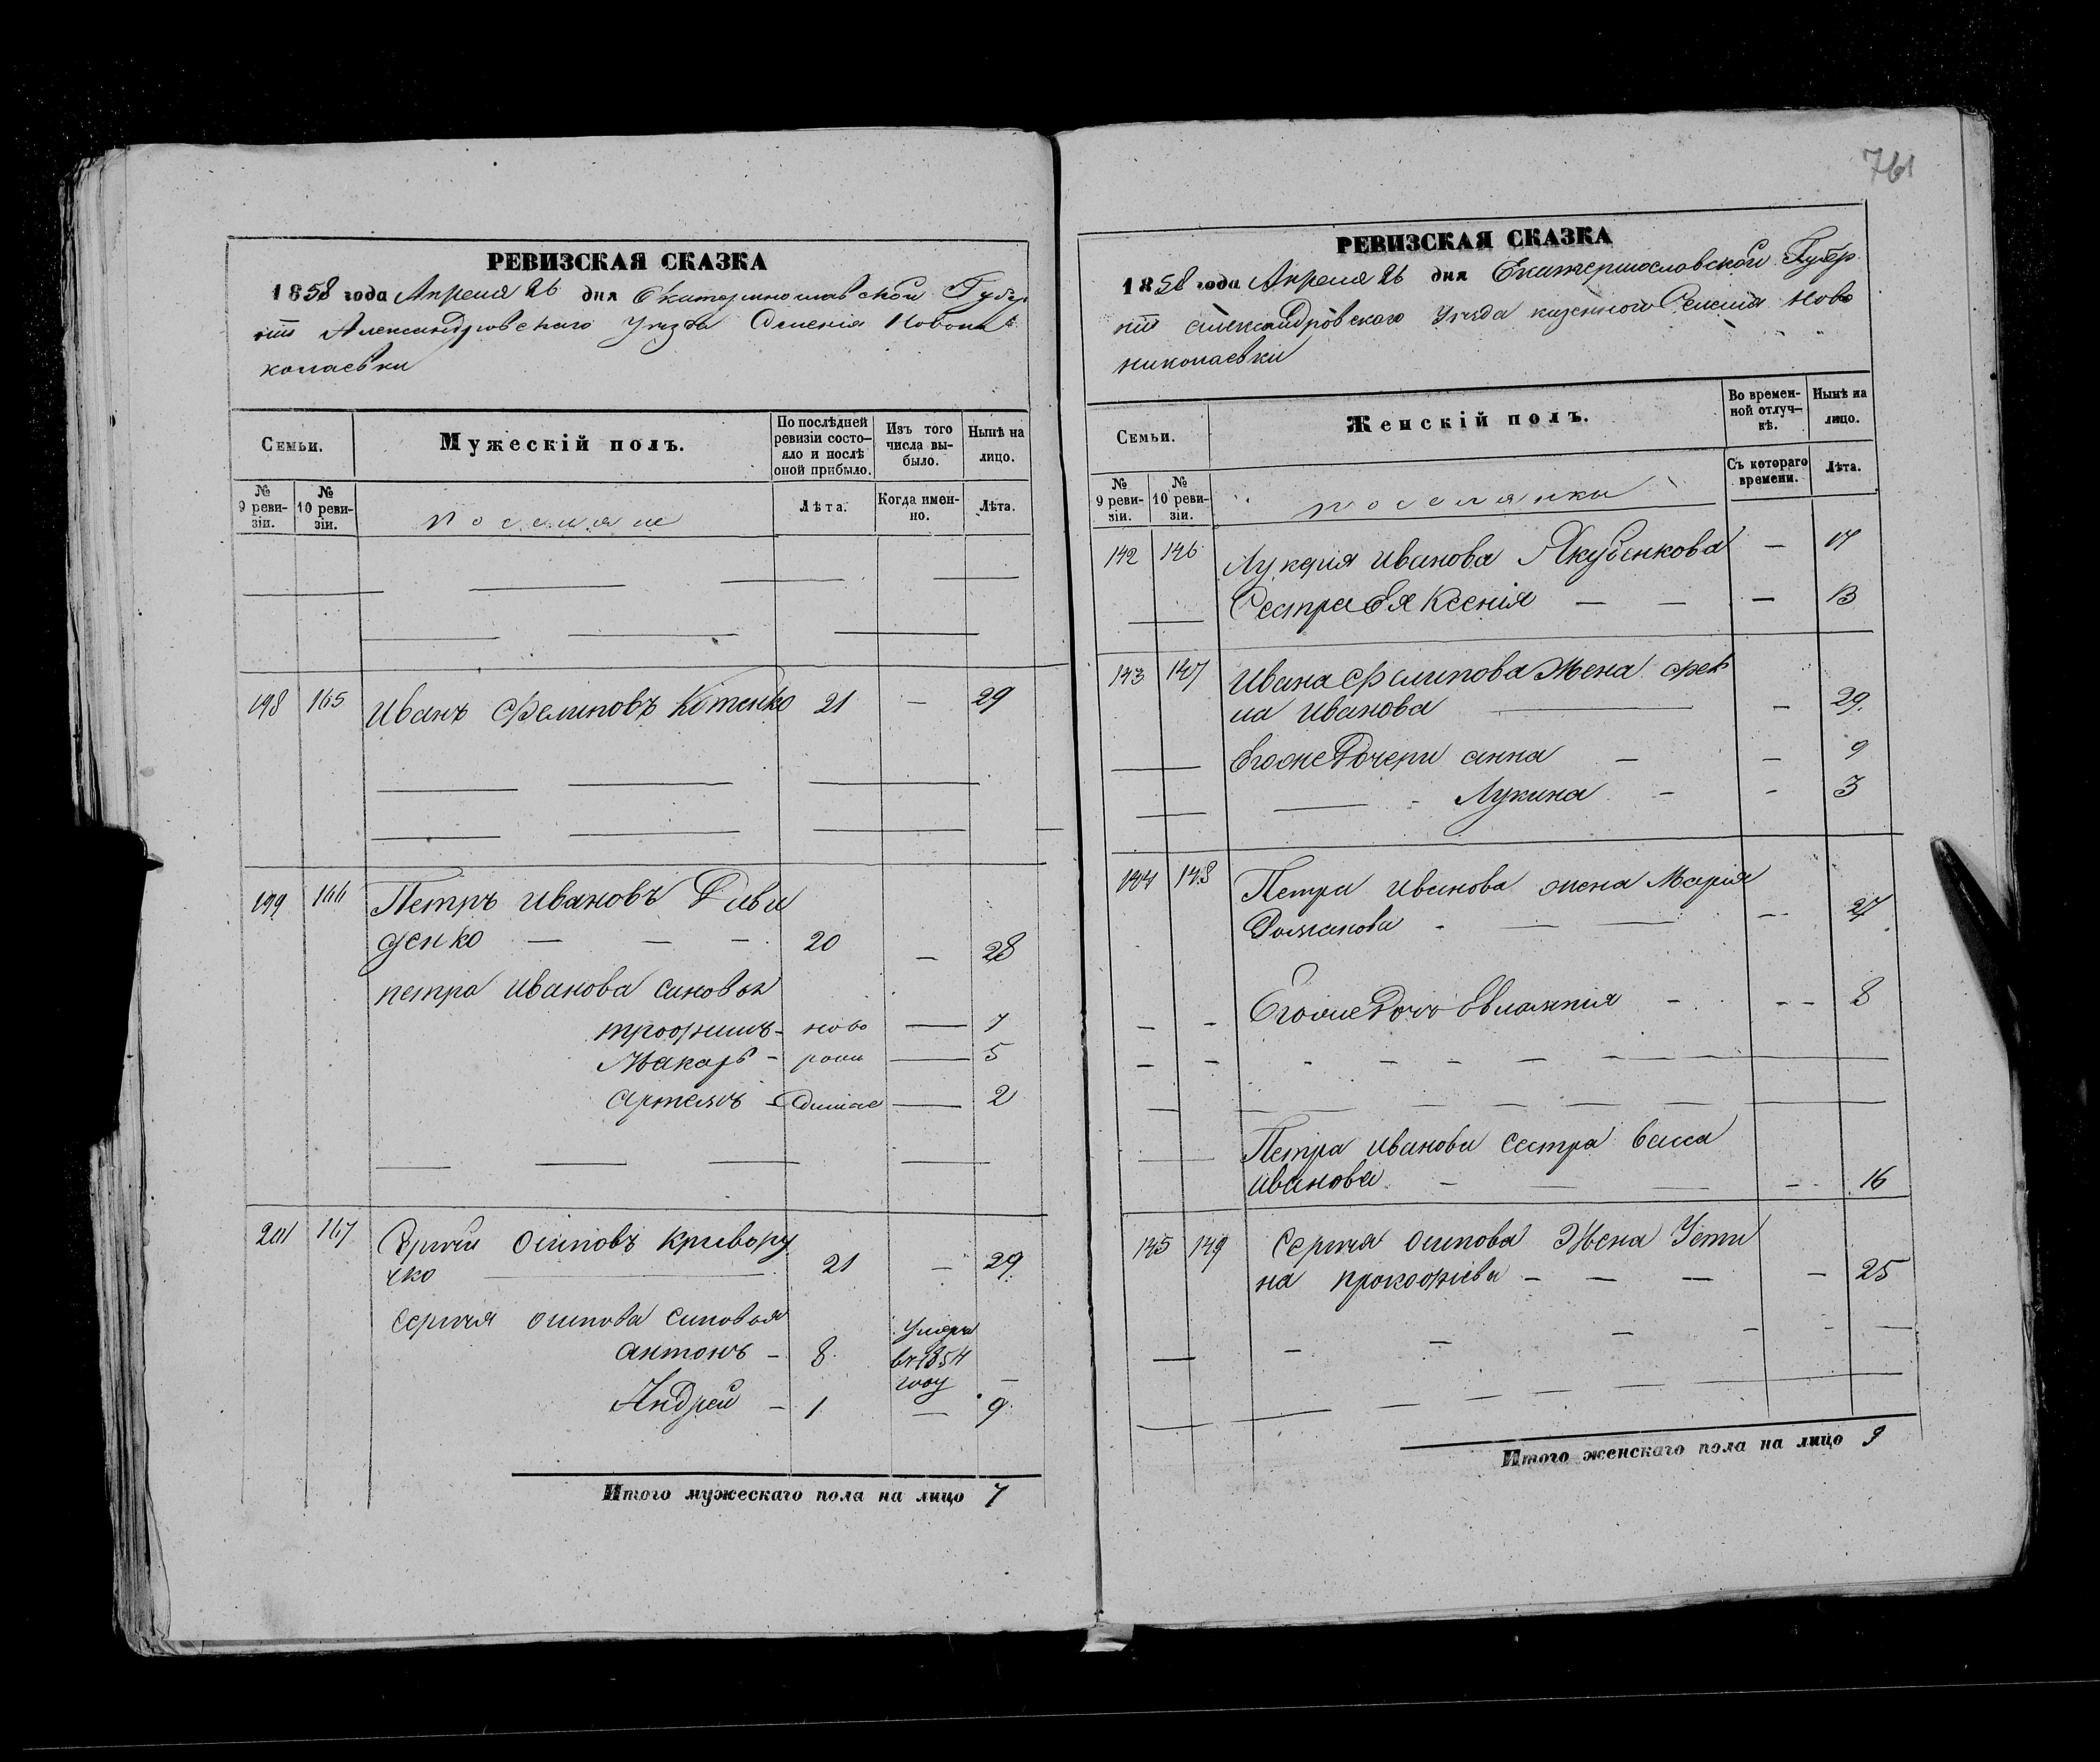 761
РЕВИЗСКАЯ СКАЗКА
1858 года Апреля 26 дня Екатеринославской Губер
ніи Александровскаго Уезда Селенія Новони
колаевки
Семьи.
Мужескій полъ.
По послѣдней ревизіи состояло и послѣ оной прибыло.
Изъ того числа выбыло.
Нынѣ на лицо.
№ 9 ревизіи.
№ 10 ревизіи.
поселяне
Лѣта.
Когда именно.
Лѣта.
198 165 Иванъ Филиповъ Котенко 21 — 29
199 166 Петръ Ивановъ Диви
денко — — — 20 — 28
петра Иванова синовья
трофимъ - ново — 7
Макаръ - рож — 5
Артемъ — 2
201 167 Сергій Осиповъ Кривору
чко — 21 — 29
Сергія Осипова Синовья
антонъ - 8 Умеръ
въ 1854
году —
Андрей - 1 — 9
Итого мужескаго пола на лицо 7
РЕВИЗСКАЯ СКАЗКА
1858 года Апреля 26 дня Екатеринославской Губер
ніи александровскаго Уезда казенного Селенія Ново
николаевки
Семьи.
Женскій полъ.
Во временной отлучкѣ.
Нынѣ на лицо.
№ 9 ревизіи.
№ 10 ревизіи.
поселянки
Съ котораго времени.
Лѣта.
142 146 Лукерія Иванова Якубенкова — 17
Сестра Ея Ксенія — — — 13
143 147 Ивана Филипова Жена фек
ла Иванова — — 29.
Егоже Дочери анна — — 9
— Лукина - - 3
144 148 Петра Иванова жена Марія
Романова - — — — 27
Егоже Дочь Евлампія - - - 8
Петра Иванова Сестра васса
Иванова - — — - 16
145 149 Сергія Осипова Жена Усти
на прокофіева — — — — 25
Итого женскаго пола на лицо 9